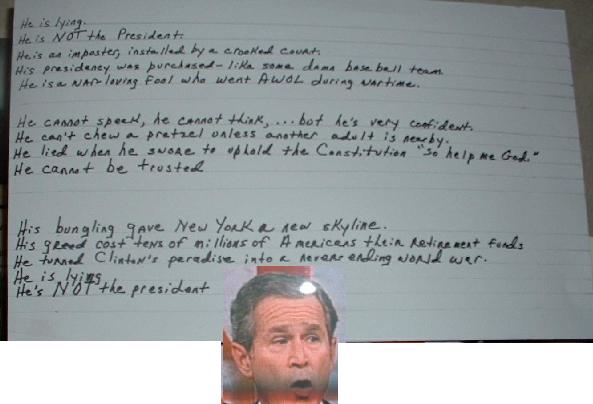 He is lying.
He is NOT the President.
He is an imposter, installed by a crooked court.
His presidency was purchased - like some damn base ball team
He is a war-loving fool who went AWOL during wartime.
He cannot speek, he cannot think, ... but he's very confident.
He can't chew a pretzel unless another adult is nearby.
He lied when he swore to uphold the Constitution "so help me God."
He cannot be trusted
His bungling gave New York a new skyline.
His greed cost tens of millions of Americans their retirement funds
He turned Clinton's peradise into a never ending world war.
He is lying
He's NOT the president